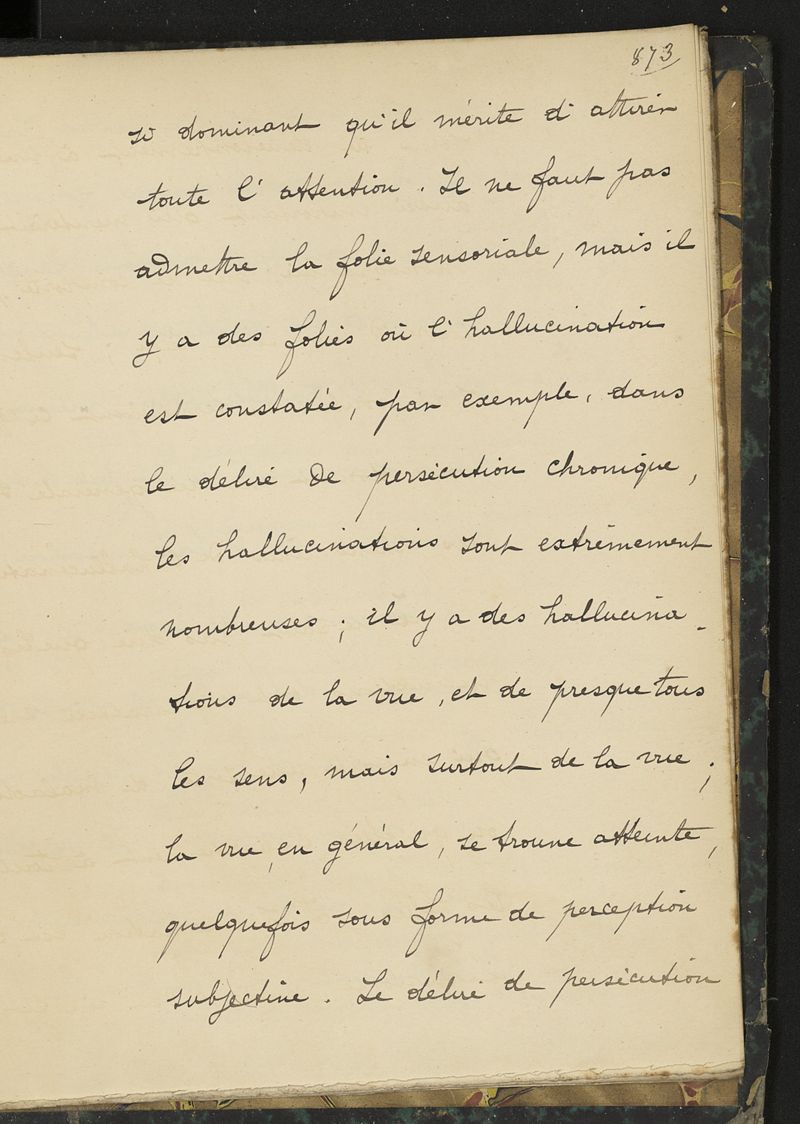 873
si dominant qu'il mérite d'attirer
toute l'attention. Il ne faut pas
admettre la folie sensoriale, mais il
y a des folies où l'hallucination
est constatée, par exemple, dans
le délire de persécution chronique,
les hallucinations sont extrêmement
nombreuses ; il y a des hallucina-
tions de la vue, et de presque tous
les sens, mais surtout de la vue ;
la vue, en général, se trouve atteinte,
quelquefois sous forme de perception
subjective. Le délire de persécution